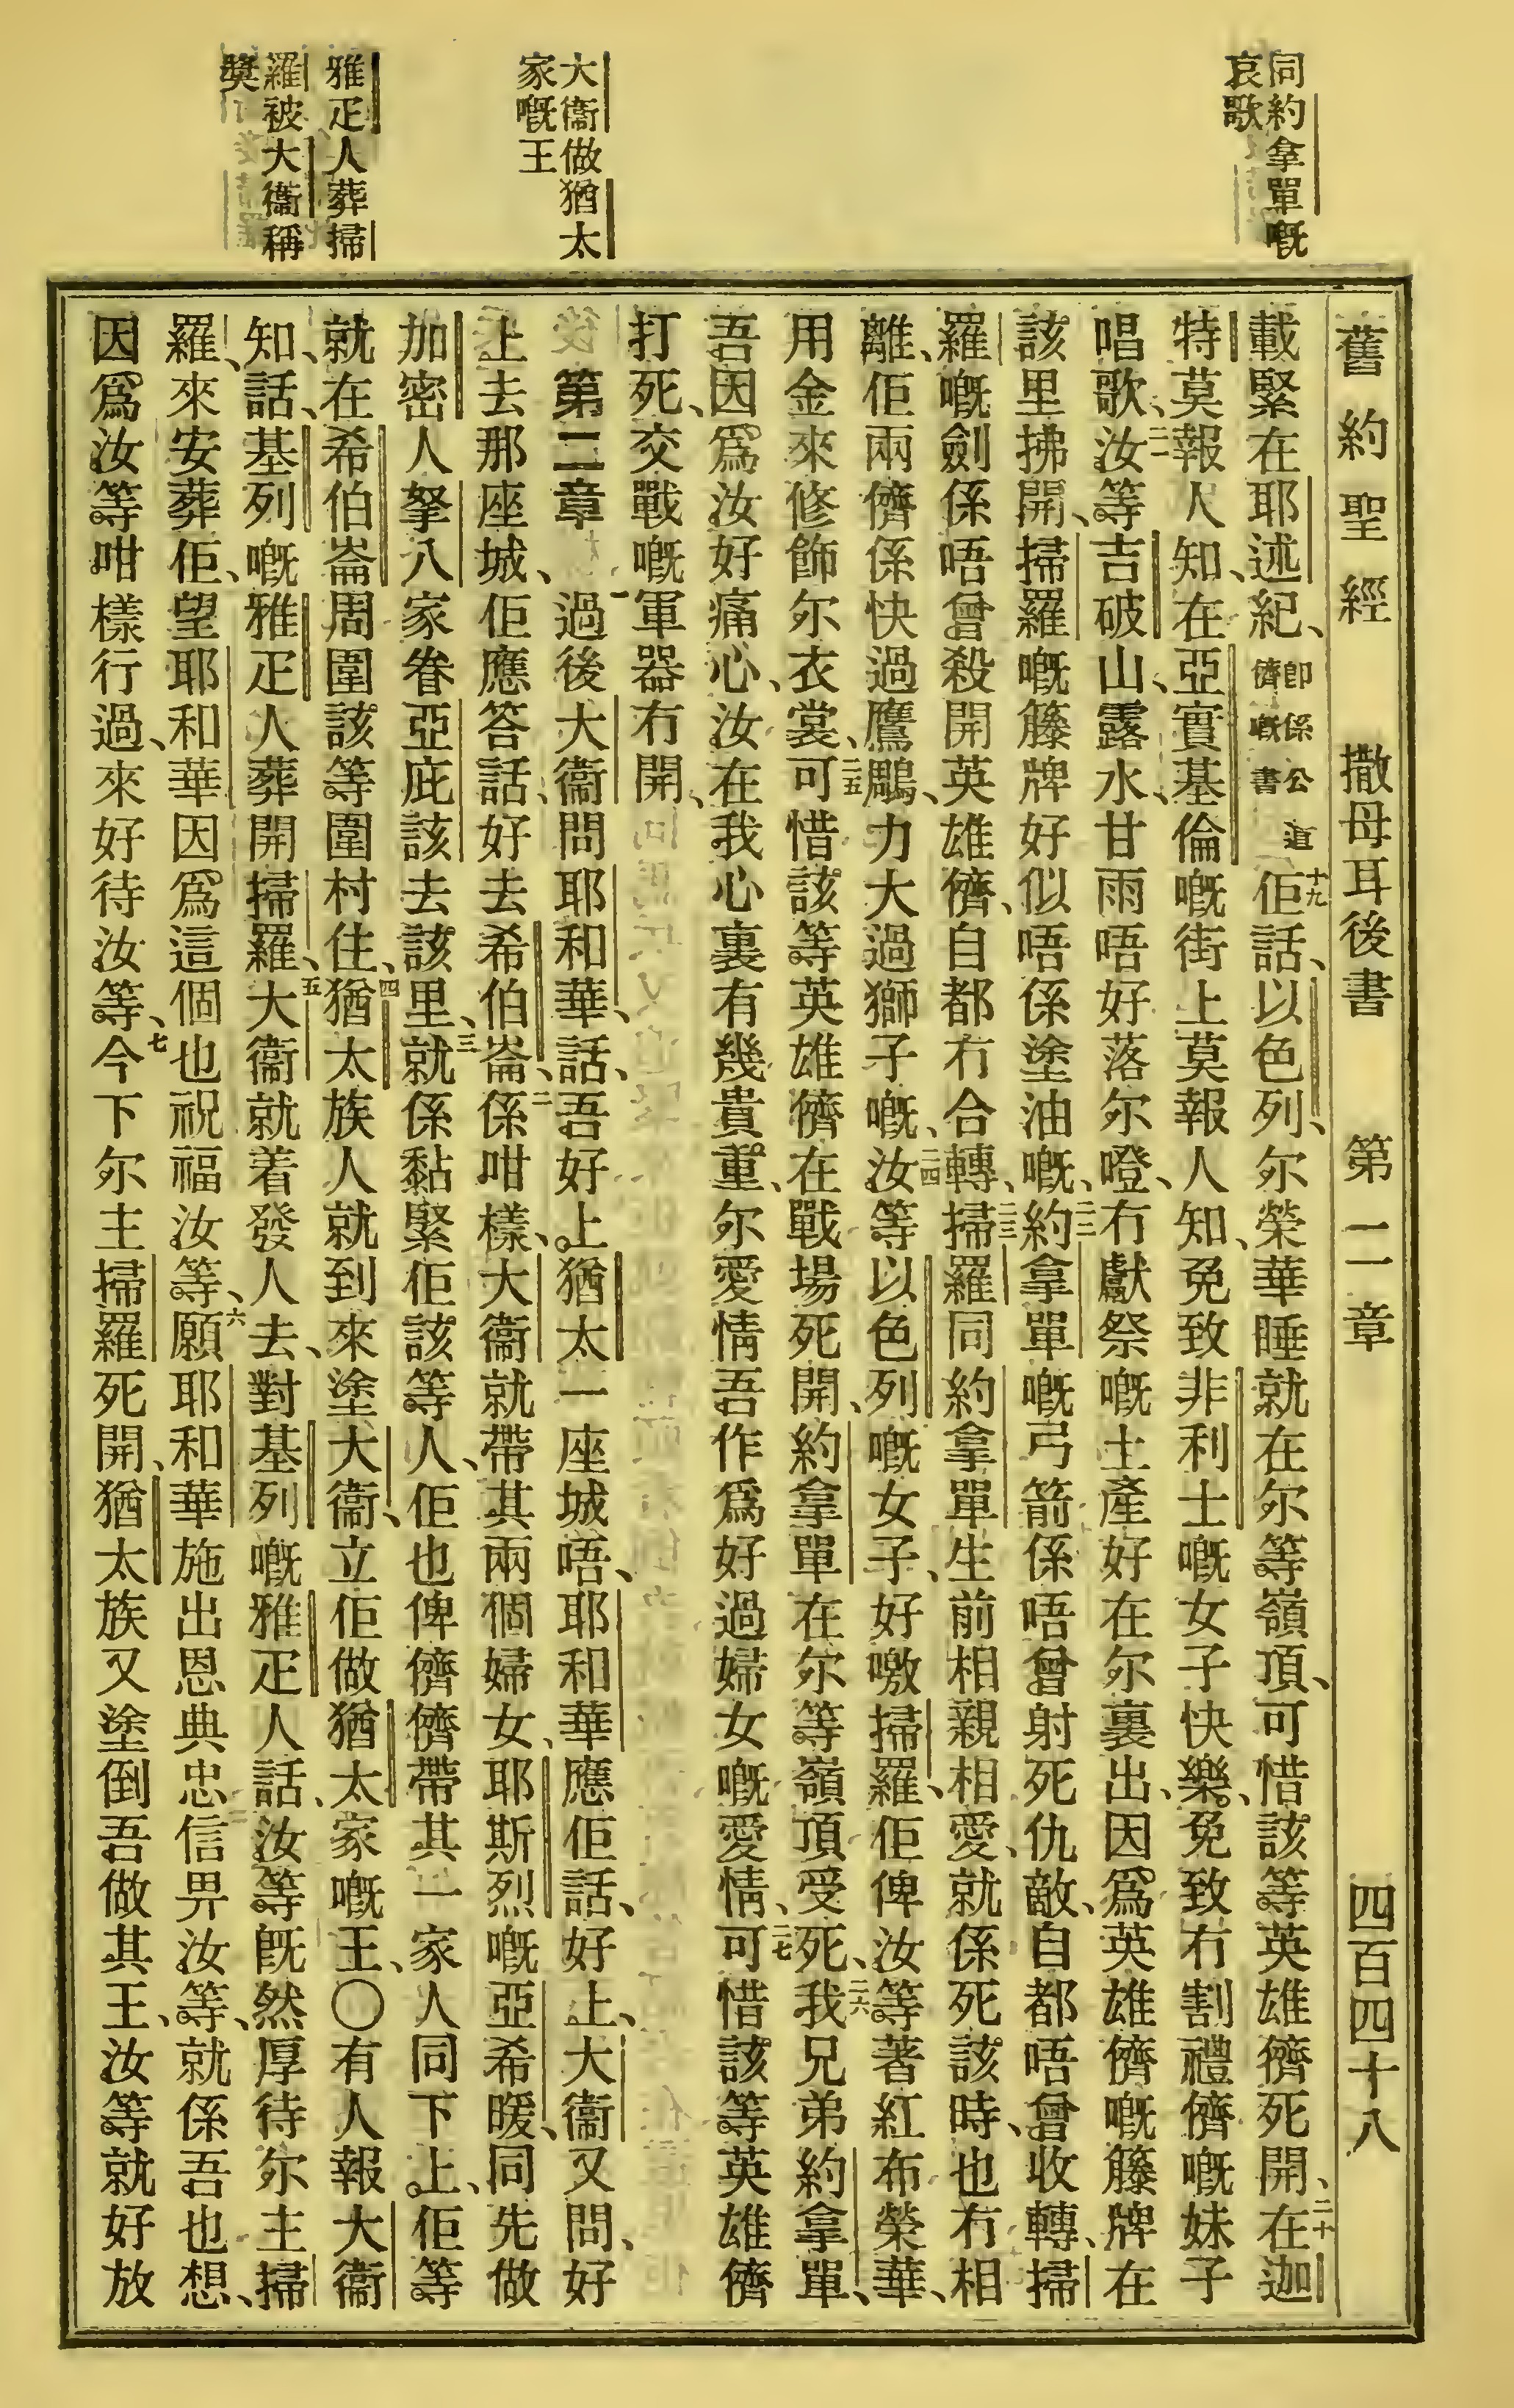 同約拿單嘅
哀歌
大衞做猶太
家嘅王
雅疋人葬掃
羅被大衞稱
奬
舊約聖經 撒母耳後書 第二章 四百四十八
載緊在耶述紀、卽係公道儕嘅書十九佢話、以色列、尔榮華睡就在尔等嶺頂、可惜該等英雄儕死開、二十在迦
特莫報人知、在亞實基倫嘅街上莫報人知、免致非利士嘅女子快樂、免致冇割禮儕嘅妹子
唱歌、二一汝等吉破山、露水、甘雨唔好落尔嶝、冇獻祭嘅土產好在尔裏出、因爲英雄儕嘅籐牌在
該里拂開、掃羅嘅籐牌好似唔係塗油嘅、二二約拿單嘅弓箭係唔曾射死仇敵、自都唔曾收轉、掃
羅嘅劍係唔曾殺開英雄儕、自都冇合轉、二三掃羅同約拿單生前相親相愛、就係死該時、也冇相
離、佢兩儕係快過鷹鵰、力大過獅子嘅、二四汝等以色列嘅女子、好噭掃羅、佢俾汝等著紅布榮華、
用金來修飾尔衣裳、二五可惜該等英雄儕在戰場死開、約拿單在尔等嶺頂受死、二六我兄弟約拿單、
吾因爲汝好痛心、汝在我心裏有幾貴重、尔愛情吾作爲好過婦女嘅愛情、二七可惜該等英雄儕
打死、交戰嘅軍器冇開、
第二章 一過後大衞問耶和華話、吾好上猶太一座城唔、耶和華應佢話、好上、大衞又問、好
上去那座城、佢應答話、好去希伯崙、二係咁樣、大衞就帶其兩個婦女、耶斯烈嘅亞希暖、同先做
加密人拏八家眷亞庇該去該里、三就係黏緊佢該等人、佢也俾儕儕帶其一家人同下上、佢等
就在希伯崙周圍該等圍村住、四猶太族人就到來塗大衞、立佢做猶太家嘅王、〇有人報大衞
知、話、基列嘅雅疋人葬開掃羅、五大衞就着發人去、對基列嘅雅疋人話、汝等旣然厚待尔主掃
羅、來安葬佢、望耶和華因爲這個也祝福汝等、六願耶和華施出恩典忠信畀汝等、就係吾也想、
因爲汝等咁樣行過、來好待汝等、七今下尔主掃羅死開、猶太族又塗倒吾做其王、汝等就好放